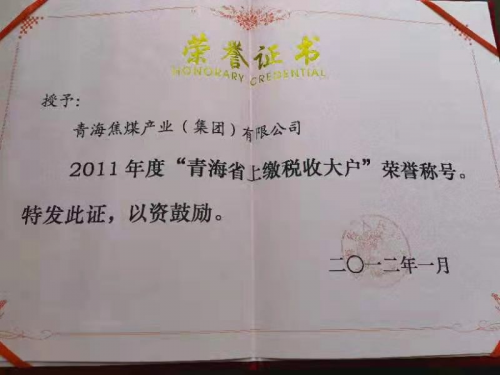 荣誉证书
HONORARY CREDENTIAL
授予：
青海焦煤产业（集团）有限公司
2011年度“青海省上缴税收大户”荣誉称号。
特发此证，以资鼓励。
二〇一二年一月